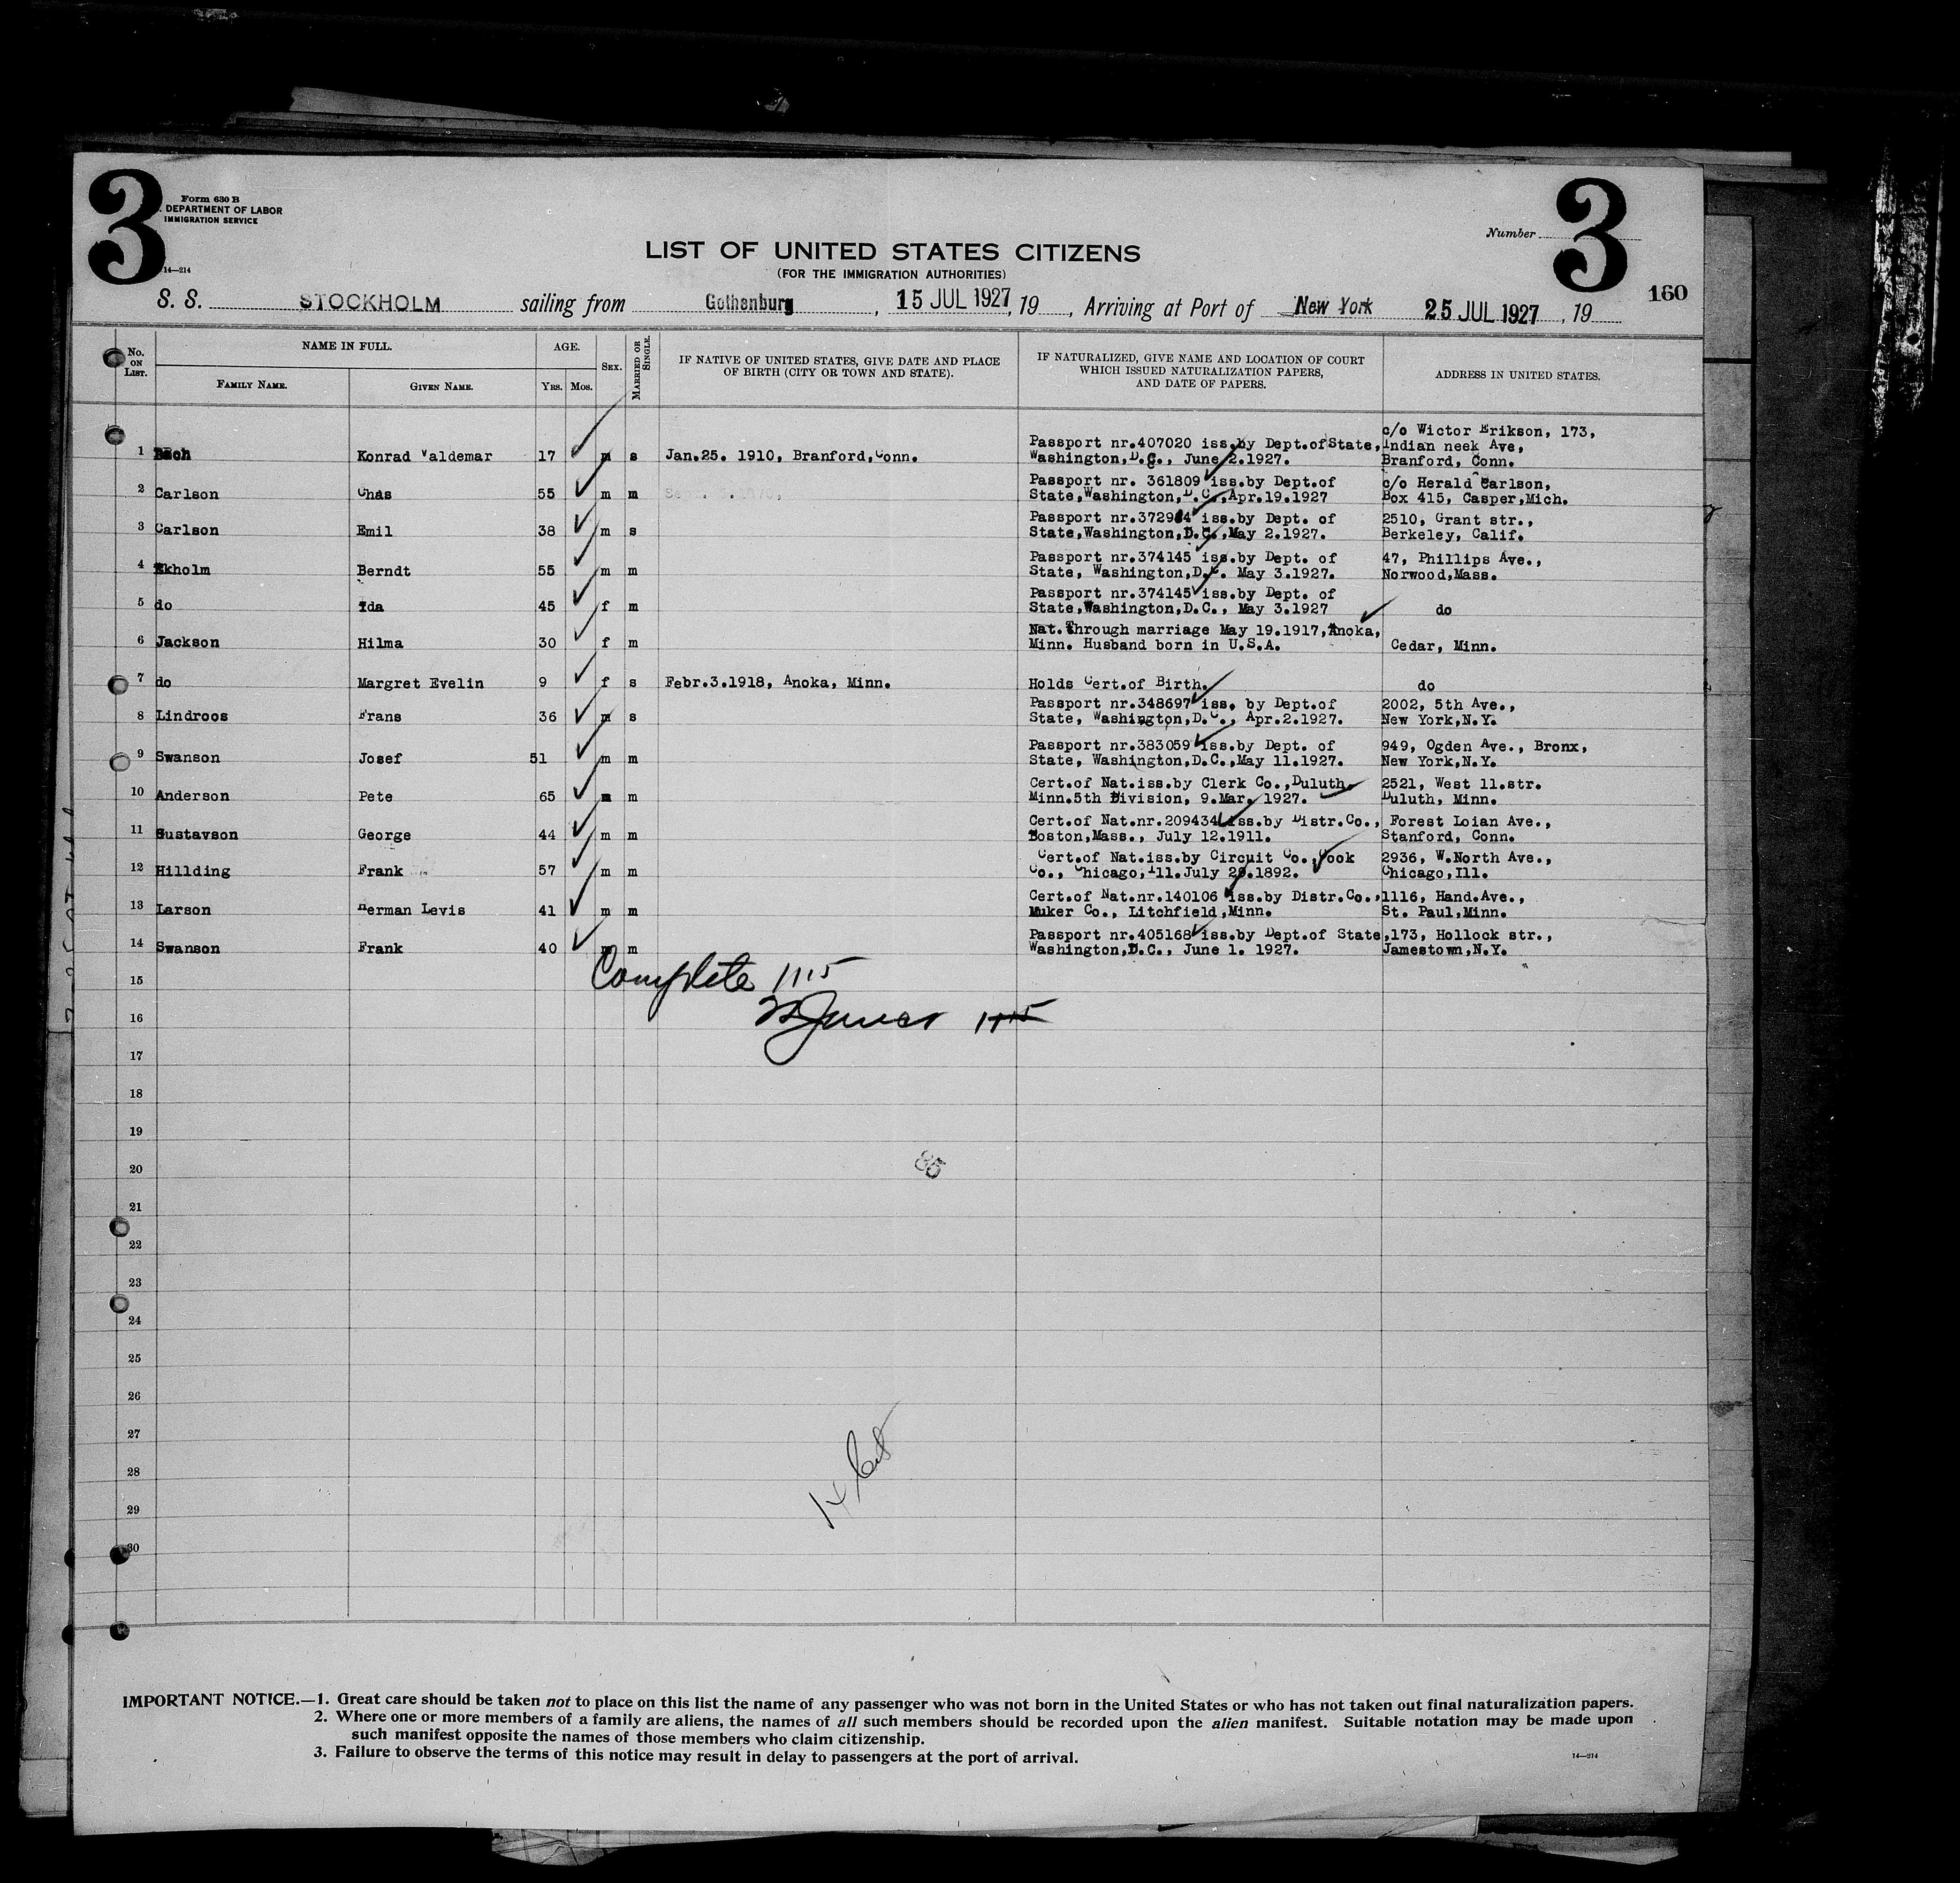 3
Form 630 B
DEPARTMENT OF LABOR
IMMIGRATION SERVICE
14—214
Number 3
LIST OF UNITED STATES CITIZENS
(FOR THE IMMIGRATION AUTHORITIES)
160
S. S. STOCKHOLM sailing from Gothenburg, 15 JUL 1927, 19 , Arriving at Port of New York 25 JUL 1927, 19
No. ON LIST.
NAME IN FULL.
FAMILY NAME.
GIVEN NAME.
AGE.
YRS. MOS.
SEX.
MARRIED OR SINGLE.
IF NATIVE OF UNITED STATES, GIVE DATE AND PLACE
OF BIRTH (CITY OR TOWN AND STATE).
IF NATURALIZED, GIVE NAME AND LOCATION OF COURT
WHICH ISSUED NATURALIZATION PAPERS,
AND DATE OF PAPERS.
ADDRESS IN UNITED STATES.
c/o Wictor Erikson, 173,
Passport nr.407020 iss.by Dept.ofState, Indian neek Ave,
1 Konrad Valdemar 17 m s Jan.25. 1910, Branford,Conn. Washington,D.C., June 2.1927. Branford, Conn.
Passport nr. 361809 iss.by Dept.of c/o Herald Carlson,
2 Carlson Chas 55 m m State,Washington,D.C.,Apr.19.1927 Box 415, Casper,Mich.
Passport iss.by Dept. of 2510, Grant str.,
3 Carlson Emil 38 m s State,Washington,D.C.,May 2.1927. Berkeley, Calif.
Passport nr.374145 iss.by Dept. of 47, Phillips Ave.,
4 Ekholm Berndt 55 m m State, Washington,D.C. May 3.1927. Norwood,Mass.
Passport nr.374145 iss.by Dept. of
5 do Ida 45 f m State,Washington,D.C., May 3.1927 do
Nat.Through marriage May 19.1917,Anoka,
6 Jackson Hilma 30 f m Minn. Husband born in U.S.A. Cedar, Minn.
7 do Margret Evelin 9 f s Febr.3.1918, Anoka, Minn. Holds Cert.of Birth. do
Passport nr.348697 iss. by Dept.of 2002, 5th Ave.,
8 Lindroos Frans 36 m s State, Washington,D.C., Apr.2.1927. New York,N.Y.
Passport nr.383059 iss.by Dept. of 949, Ogden Ave., Bronx,
9 Swanson Josef 51 m m State, Washington,D.C.,May 11.1927. New York,N.Y.
Cert.of Nat.iss.by Clerk Co.,Duluth, 2521, West 11.str.
10 Anderson Pete 65 m m Minn.5th Division, 9.Mar. 1927. Duluth, Minn.
Cert.of Nat.nr.209434 iss.by Distr.Co., Forest Loian Ave.,
11 Gustavson George 44 m m Boston,Mass., July 12.1911. Stanford, Conn.
Cert.of Nat.iss.by Circuit Co.,Cook 2936, W.North Ave.,
12 Hillding Frank 57 m m Co., Chicago,Ill.July 29.1892. Chicago,Ill.
Cert.of Nat.nr.140106 iss.by Distr.Co., 1116, Hand.Ave.,
13 Larson Herman Levis 41 m m Muker Co., Litchfield,Minn. St. Paul,Minn.
Passport nr.405168 iss.by Dept.of State, 173, Hollock str.,
14 Swanson Frank 40 m m Washington,D.C., June 1. 1927. Jamestown,N.Y.
Complete 1115
15
16
17
18
19
20
21
22
23
24
25
26
27
28
29
30
IMPORTANT NOTICE.—1. Great care should be taken not to place on this list the name of any passenger who was not born in the United States or who has not taken out final naturalization papers.
2. Where one or more members of a family are aliens, the names of all such members should be recorded upon the alien manifest. Suitable notation may be made upon
such manifest opposite the names of those members who claim citizenship.
3. Failure to observe the terms of this notice may result in delay to passengers at the port of arrival.
14—214